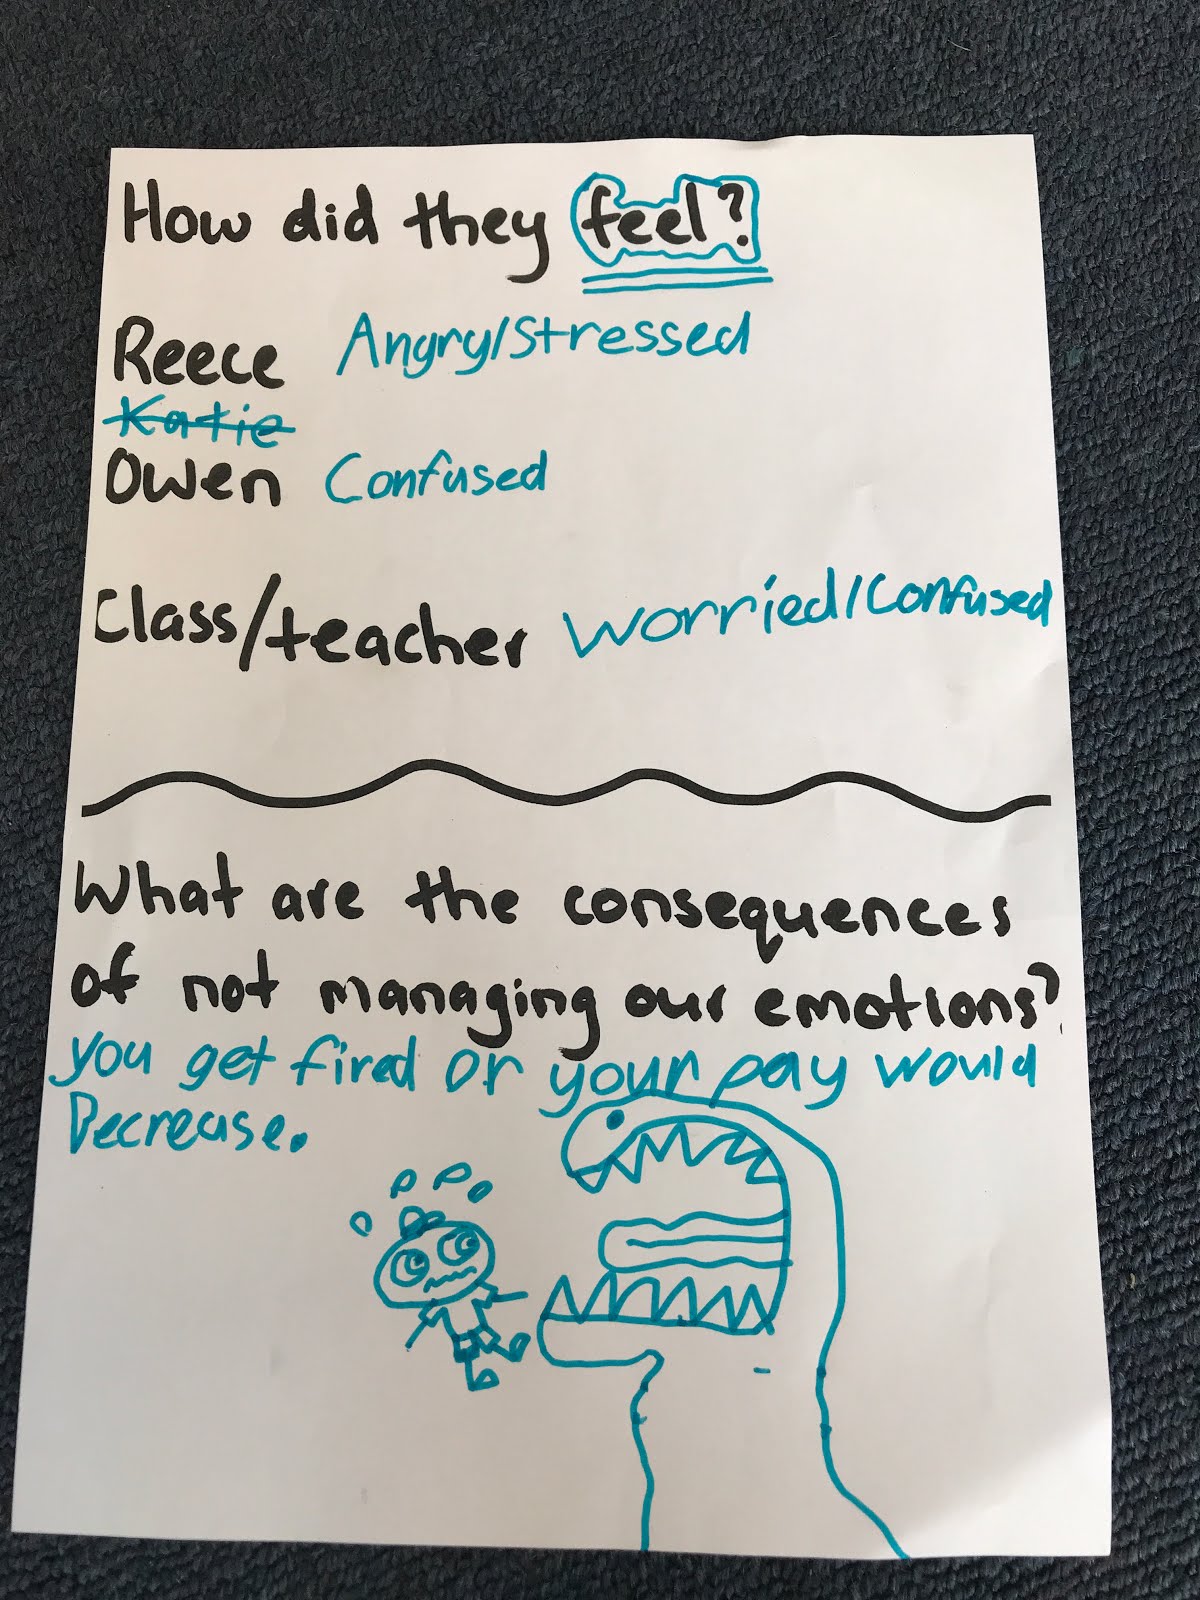 How did they feel?
Reece Angry/Stressed
Katie
Owen Confused
Class/teacher Worried/Confused
What are the consequences
of not managing our emotions?
you get fired or your pay would
Decrease.